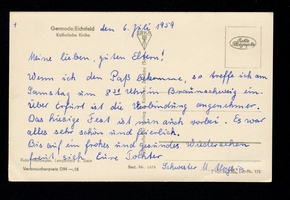 Germode/Eichsfeld
Katholische Kirche
den 6. Juli 1959
Meine lieben, guten Eltern!
Wenn ich den Paß bekomme, so treffe ich am
Samstag um 8 30 Uhr in Braunschweig ein.
Über Erfurt ist die Verbindung angenehmer.
Das hiesige Fest ist nun auch vorbei. Es war
alles sehr schön und feierlich.
Bis auf ein frohes und gesundes Wiedersehen
freut sich Eure Tochter
Schwester M.
Verbraucherpreis DM —,18
Best. Nr.